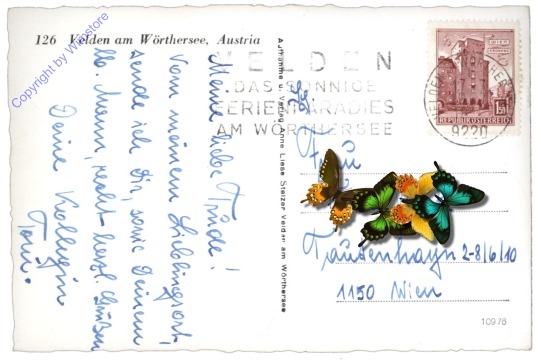 126 Velden am Wörthersee, Austria
Meine liebe Trude!
Von meinem Lieblingsort
sende ich Dir, sowie Deinem
lb. Mann, recht herzl. Grüße
Deine Kollegin
Toni.
Aufnahme u. Verlag Anne Liese Stelzer Velden am Wörthersee
VELDEN
DAS SONNIGE
FERIENPARADIES
AM WÖRTHERSEE
9220
WIEN
1.50
REPUBLIK ÖSTERREICH
Frau
Trautenhayn 2-8/6/10
1150 Wien
10976
Copyright by Wienstore